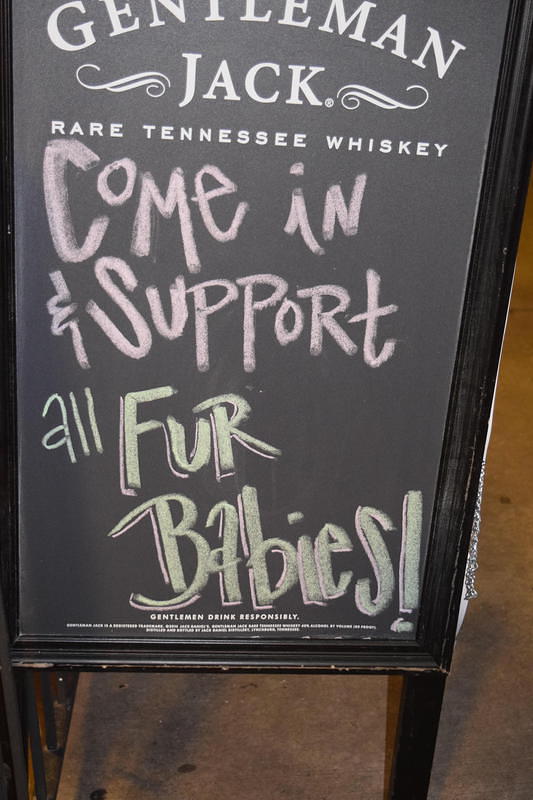 GENTLEMAN
JACK®
RARE TENNESSEE WHISKEY
COME in
& SUPPORT
all FUR
Babies!
GENTLEMEN DRINK RESPONSIBLY.
GENTLEMAN JACK IS A REGISTERED TRADEMARK. ©2016 JACK DANIEL'S. GENTLEMAN JACK RARE TENNESSEE WHISKEY 40% ALCOHOL BY VOLUME (80 PROOF).
DISTILLED AND BOTTLED BY JACK DANIEL DISTILLERY, LYNCHBURG, TENNESSEE.